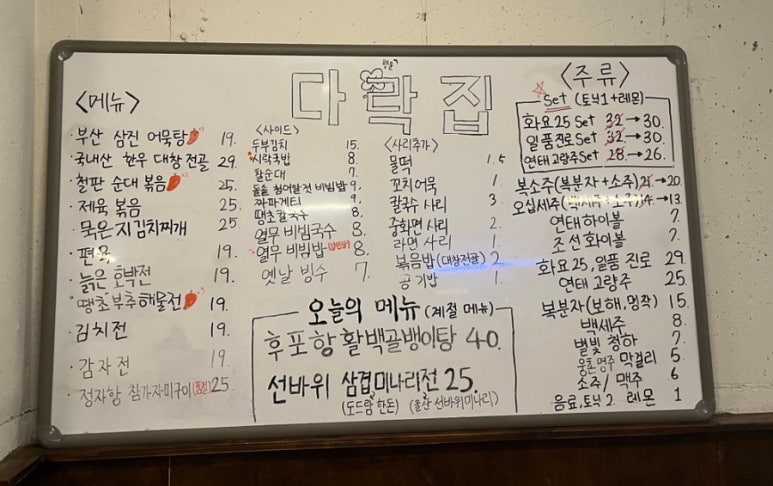 다락집
<메뉴>
· 부산 삼진 어묵탕 19.
· 국내산 한우 대창전골 29.
· 철판 순대 볶음 25.
· 제육 볶음 25.
· 묵은지김치찌개 25.
· 편육 19.
· 늙은 호박전 19.
· 땡초부추해물전 19.
· 김치전 19.
· 감자전 19.
· 정자항 참가자미구이(품절) 25.
<사이드>
두부김치 15.
시락국밥 8.
찰순대 7.
돌솥 청어알젓 비빔밥 9.
짜파게티 9.
땡초칼국수 8.
열무 비빔국수 8.
열무 비빔밥 8.
옛날 빙수 7.
<사리추가>
물떡 1.5
꼬치어묵 1.
칼국수 사리 3.
중화면 사리 2.
라면 사리 1.
볶음밥(대창전골) 2
공기밥 1.
오늘의 메뉴 (계절 메뉴)
후포항 활백골뱅이탕 40.
선바위 삼겹미나리전 25.
(도드람한돈) (울산 선바위미나리)
<주류>
Set (토닉1+레몬)
화요25 Set 32→30.
일품진로 Set 32→30.
연태고량주 Set 28→26.
복소주(복분자+소주) 21.→20
오십세주 14.→13
연태하이볼 7.
조선 화이볼 7.
화요25, 일품 진로 29
연태 고량주 25
복분자(보해,명작) 15.
백세주 8.
별빛 청하 7.
웅촌명주 막걸리 5
소주/맥주 6
음료,토닉 2. 레몬 1